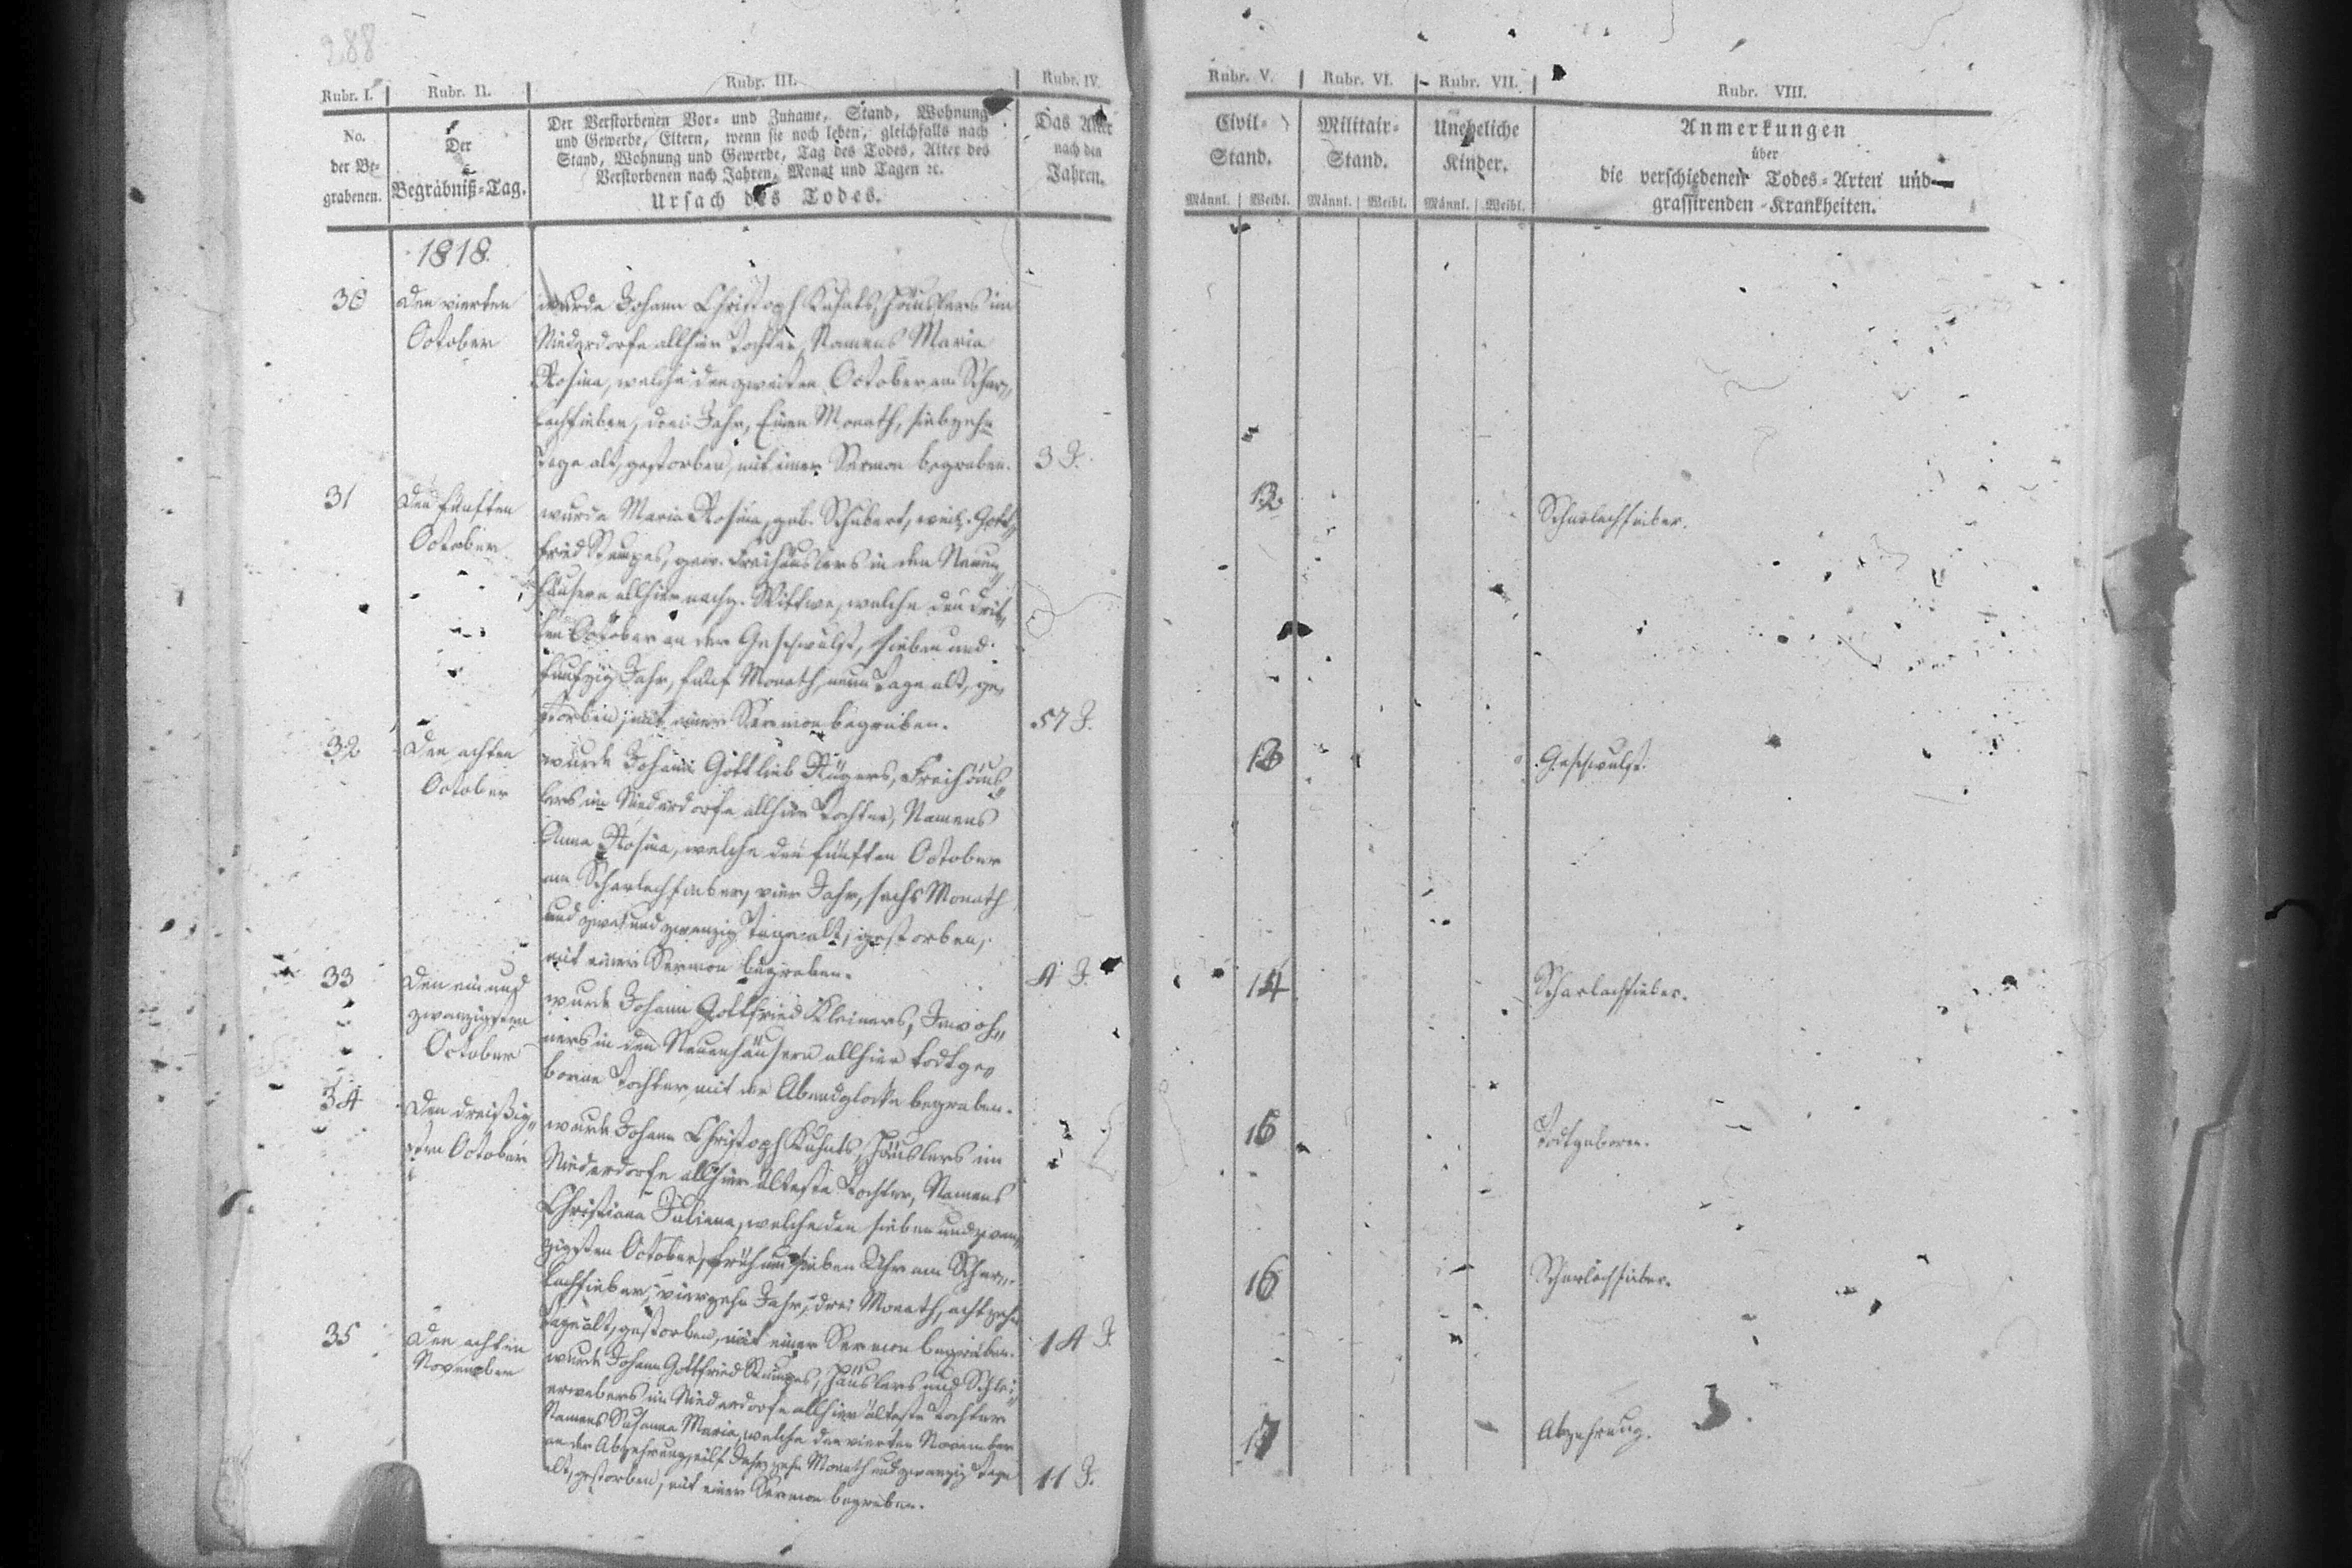 288
Rubr. I. Rubr. II. Rubr. III. Rubr. IV.
No.
der Be-
grabenen.
Der
Begräbniß-Tag.
Der Verstorbenen Vor- und Zuname, Stand, Wohnung
und Gewerbe, Eltern, wenn sie noch leben, gleichfalls nach
Stand, Wohnung und Gewerbe, Tag des Todes, Alter des
Verstorbenen nach Jahren, Monat und Tagen ꝛc.
Ursach des Todes.
Das Alter
nach den
Jahren.
1818.
30
den vierten
October
wurde Johann Christoph Kuhnts, Häuslers im
Niederdorfe allhier Tochter, Namens Maria
Rosina, welche den zweiten October am Schar„
lachfieber, drei Jahr, Einen Monath, siebzehn
Tage alt, gestorben, mit einer Sermon begraben.
3 J.
31
Den fünften
October
wurde Maria Rosina, geb. Schubert, weil. Gott„
fried Stumpes, gew. Freihäuslers in den Neuen„
häusern allhier nachg. Wittwe, welche den drit„
ten October an der Geschwulst, sieben und
funfzig Jahr, fünf Monath, neun Tage alt, ge„
storben, mit einer Sermon begraben.
57 J.
32
Den achten
October
wurde Johann Gottlieb Rügers, Freihäus„
lers im Niederdorfe allhier Tochter, Namens
Anna Rosina, welche den fünften October
am Scharlachfieber, vier Jahr, sechs Monath
und zwei und zwanzig Tage alt, gestorben,
mit einer Sermon begraben.
4 J.
33
Den ein und
zwanzigsten
October
wurde Johann Gottfried Kleiners, Inwoh„
ners in den Neuenhäusern allhier todtge„
borne Tochter, mit der Abendglocke begraben.
34
Den dreißig„
sten October
wurde Johann Christoph Kuhnts, Häuslers im
Niederdorfe allhier älteste Tochter, Namens
Christiana Juliana, welche den sieben und zwan„
zigsten October, früh um sieben Uhr am Schar„
lachfieber, vierzehn Jahr, drei Monath, achtzehn
Tage alt, gestorben, mit einer Sermon begraben.
14 J
35
Den achten
November
wurde Johann Gottfried Stumpes, Häuslers und Schlei„
erwebers im Niederdorfe allhier älteste Tochter
Namens Susanna Maria, welche den vierten November
an der Abzehrung, eilf Jahr, zehn Monath und zwanzig Tage
alt, gestorben, mit einer Sermon begraben.
11 J.
Rubr. V. Rubr. VI. Rubr. VII. Rubr. VIII.
Civil-
Stand.
Militair-
Stand.
Uneheliche
Kinder.
Anmerkungen
über
die verschiedenen Todes-Arten und
grassirenden Krankheiten.
Männl. Weibl. Männl. Weibl. Männl. Weibl.
12 Scharlachfieber.
13 Geschwulst.
14 Scharlachfieber.
15 Todtgeboren.
16 Scharlachfieber.
17 Abzehrung.